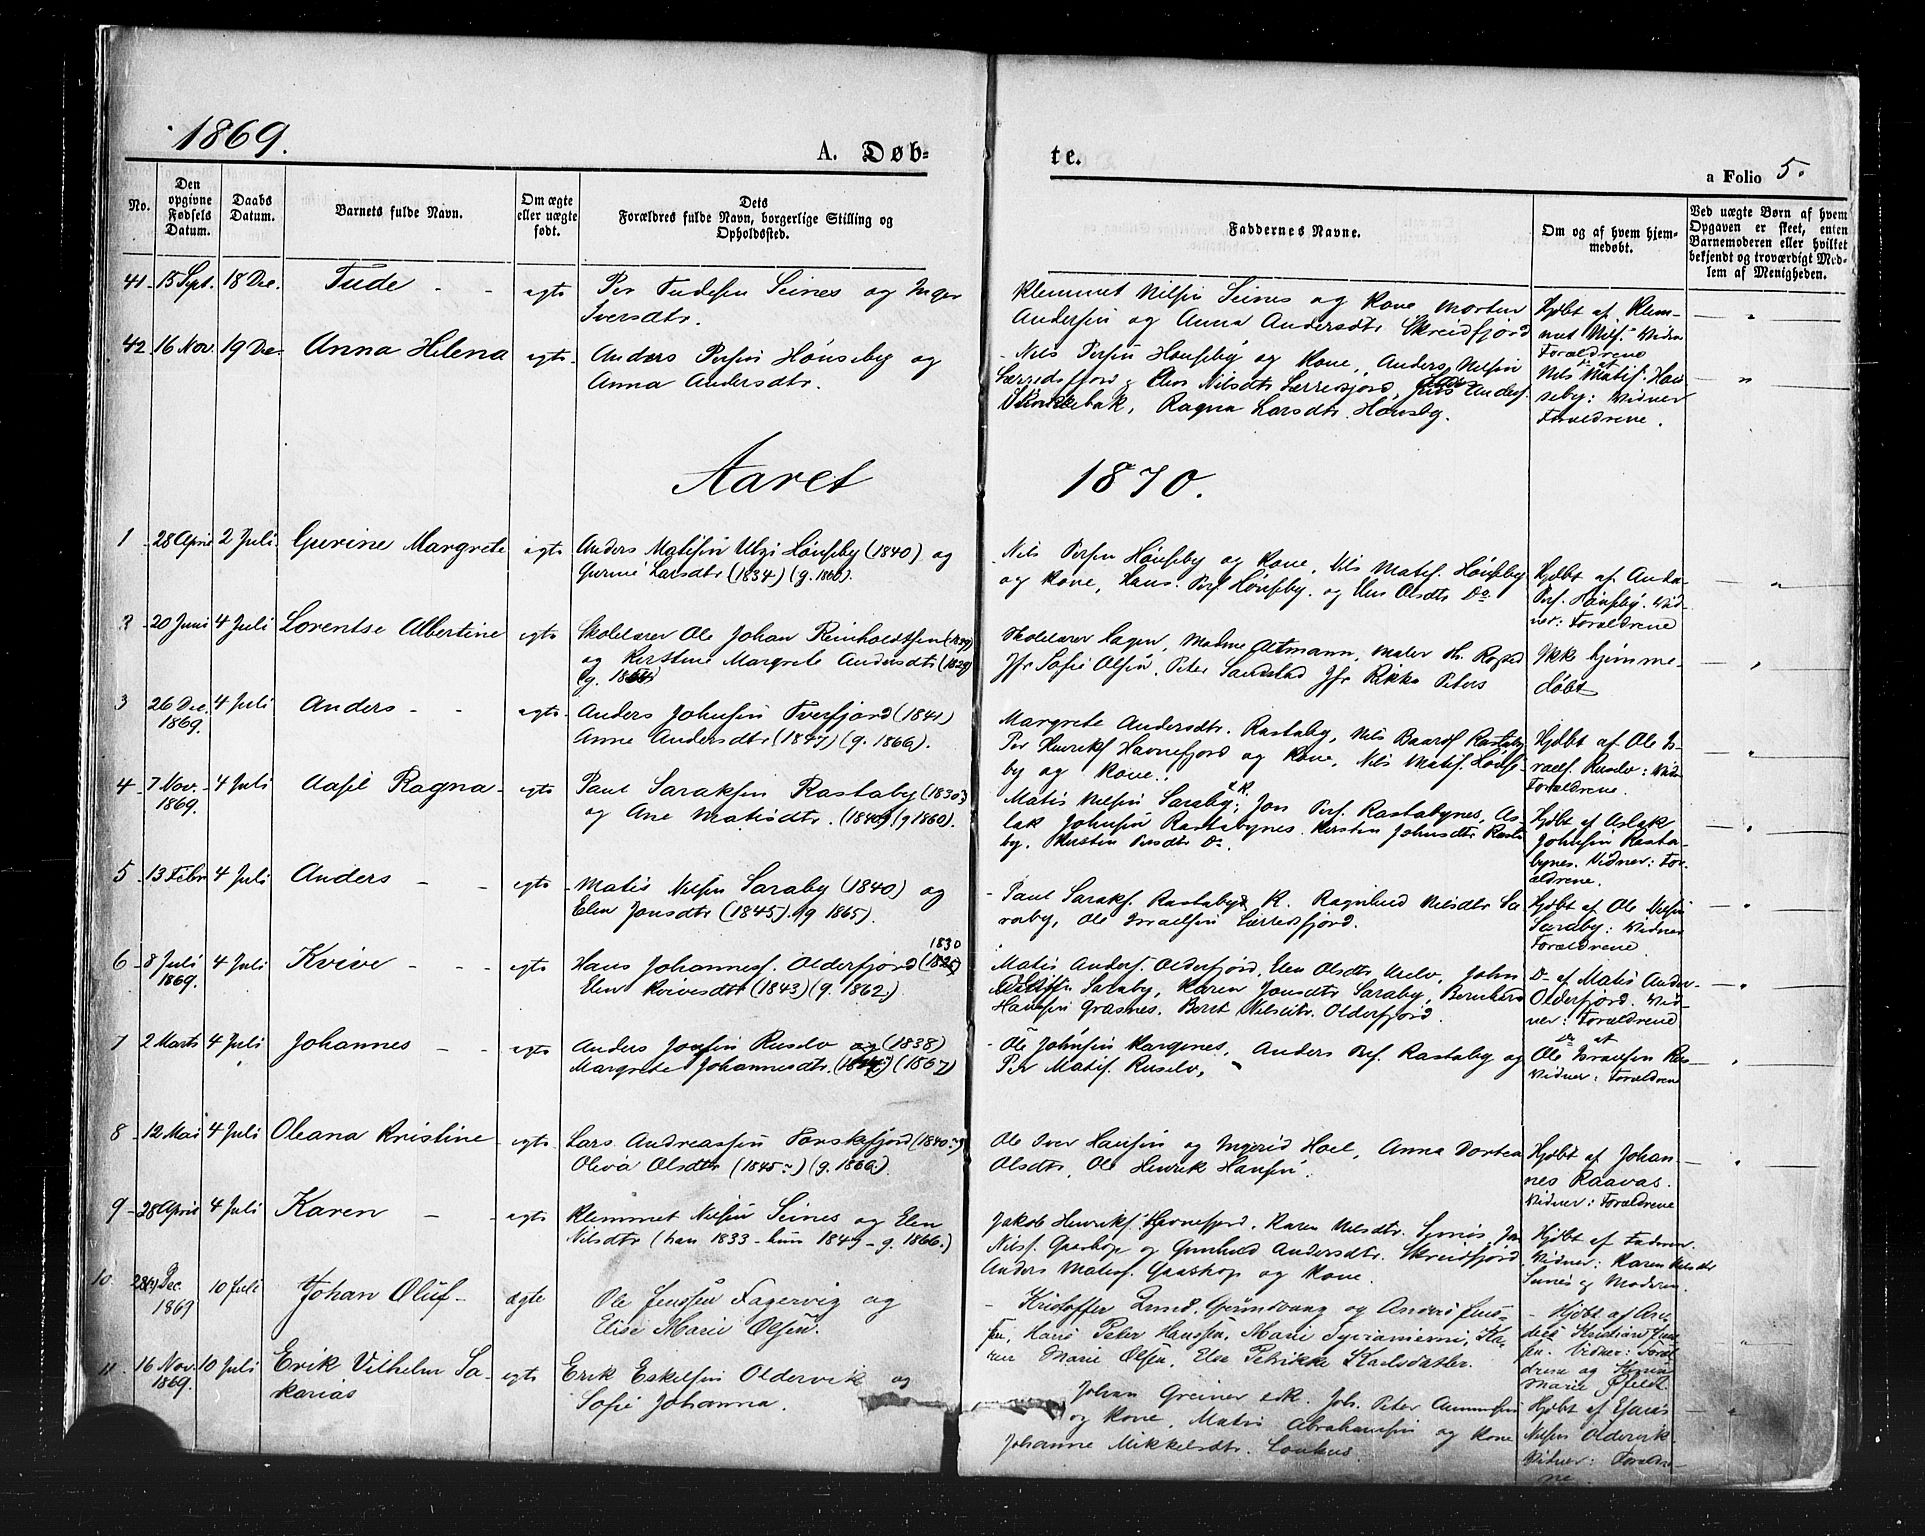 1869.
A. Døb-
te.
a Folio 5.
No.
Den opgivne Fødsels Datum.
Daabs Datum.
Barnets fulde Navn.
Om ægte eller uægte født.
Dets Forældres fulde Navn, borgerlige Stilling og Opholdssted.
Faddernes Navne.
Om og af hvem hjem-
medøbt.
Ved uægte Børn af hvem
Opgaven er skeet, enten
Barnemoderen eller hvilket
bekjendt og troværdigt Med-
lem af Menigheden.
41 15 Sept. 18 Dec. Tude - - egte Per Tudesen Seines og Inger
Iversdtr.
Klemmet Nilsen Seines og Kone, Morten
Andersen og Anna Andersdtr Skreidfjord
Hjdbt af Klem-
met Nils. Vidn
Forældrene
42 16 Nov. 19 Dec. Anna Helena egte Anders Persen Hønseby og
Anna Andersdtr.
Nils Persen Hønseby og Kone, Anders Nilsen
Lærredsfjord, Elen Nilsdtr Lærredsfjord, Anders.
Ragna Larsdtr. Hønseby.
Do af
Nils Matis. Høn-
seby: Vidner
Forældrene.
Aaret 1870.
1 28 April 2 Juli Gurine Margrete egte Anders Matisen Utzi Hønseby (1840) og
Gurine Larsdtr (1834) (g. 1860).
Nils Persen Hønseby og Kone, Nils Matis. Hønseby
og Kone, Hans Pers Hønseby. og Elen Olsdtr Do
Hjdbt af Anders
Pers. Hønseby. Vid-
ner: Forældrene
2 20 Juni 4 Juli Lorentse Albertine egte Skolelærer Ole Johan Reinholdtsen
og Kerstine Margrete Andersdtr (1829)
Skolelærer Lagen, Malene Altmann,
Jfr Sofie Olsen, Peter Sandstad Jfr Rikke Peters
Ikke hjemme-
døbt
3 26 Dec. 1869. 4 Juli Anders - - egte Anders Johnsen Tverfjord (1841)
Anne Andersdtr (1847) (g. 1866).
Margrete Andersdtr. Rastaby, Nils Baards Rastaby
Per Henriks Havnefjord og Kone, Nils Matis. Hønse-
by og Kone.
Hjdbt af Ole Is-
raels. Ruselv: Vidn
Forældrene.
4 7 Nov. 1869. 4 Juli Aasel Ragna egte Paul Saraksen Rastaby (1830)
og Ane Matisdtr. (g 1860).
Matis Nilsen Saraby, Jon Pers. Rastabynes, As-
lak Johnsen Rastabynes. Kersten Johnsdtr Rasta
by. Kersten Persdtr Do.
Hjdbt af Aslak
Johnsen Rasta-
bynes. Vidner: For-
ældrene.
5 13 Febr 4 Juli Anders - - egte Matis Nilsen Saraby (1840) og
Elen Jonsdtr (1845). (g 1865).
Paul Saraks. Rastaby K. Ragnhild Nilsdtr Sa-
raby, Ole Israelsen Lærredsfjord.
Hjdbt af Ole Nilsen
Saraby: Vidner
Forældrene
6 8 Juli 1869. 4 Juli Kvive - - - egte Hans Johannes. Olderfjord 1830
Elen Kvivesdtr (1843) (g. 1862)
Matis Anders. Olderfjord, Elen Olsdtr Ruselv, John
Saraby, Karen Jonsdtr Saraby, Bernhard
Hansen Grasnes, Beret Nilsdtr. Olderfjord.
Do af Matis Anders-
Olderfjord. Vid-
ner: Forældrene
7 2 Marts 4 Juli Johannes - - egte Anders Jonsen Ruselv og (1838)
Margrete Johannesdtr. (1867)
Ole Johnsen Kargenes, Anders Pers. Rastaby og
Per Matis. Ruselv,
Do af
Ole Israelsen Rus
Vidner: Forældrene
8 12 Mai 4 Juli Oleana Kristine egte Lars Andreassen Torskefjord (1840)
Oliva Olsdtr (1845) (g. 1869)
Ole Iver Hansen og Ingerid Hoel, Anna Dortea
Olsdtr, Ole Henrik Hansen.
Hjdbt af Johan-
nes Raavas.
Vidner: Forældrene
9 28 April 4 Juli Karen - - egte Klemmet Nilsen Seines og Elen
Nilsdtr (han 1833 - hun 1849 - g. 1866.)
Jakob Henriks. Havnefjord. Karen Nilsdtr. Sennes, Jon
Nils. Gaashop og Gunhild Andersdtr. Skreidfjord
Anders Matis. Gaashop og Kone.
Hjdbt af Faderen.
Vidner: Karen Nilsdtr
Sennes og Moderen.
10. 28 Dec 1869 10 Juli Johan Oluf - ægte Ole Jenssen Fagervig og
Elise Marie Olsen.
Kristoffer Lund, Grundvaag og Anders Jens-
sen, Hans Peter Hanssen, Marie
Marie Olsen, Else Petrikke Karlsdatter.
Hjdbt af An-
dreas Kristian
sen. Vidner: Foræl-
drene og
Marie
11 16 Nov. 1869. 10 Juli Erik Vilhelm Sa-
karias egte Erik Eskelsen Oldervik og
Sofie Johanna.
Johan Greiner Joh. Peter
og Kone, Matis Abrahamsen og Kone
Johanne Mikkelsdtr.
Hjdbt af
Nilsen Oldervik
Vidner: Forældre-
ne.